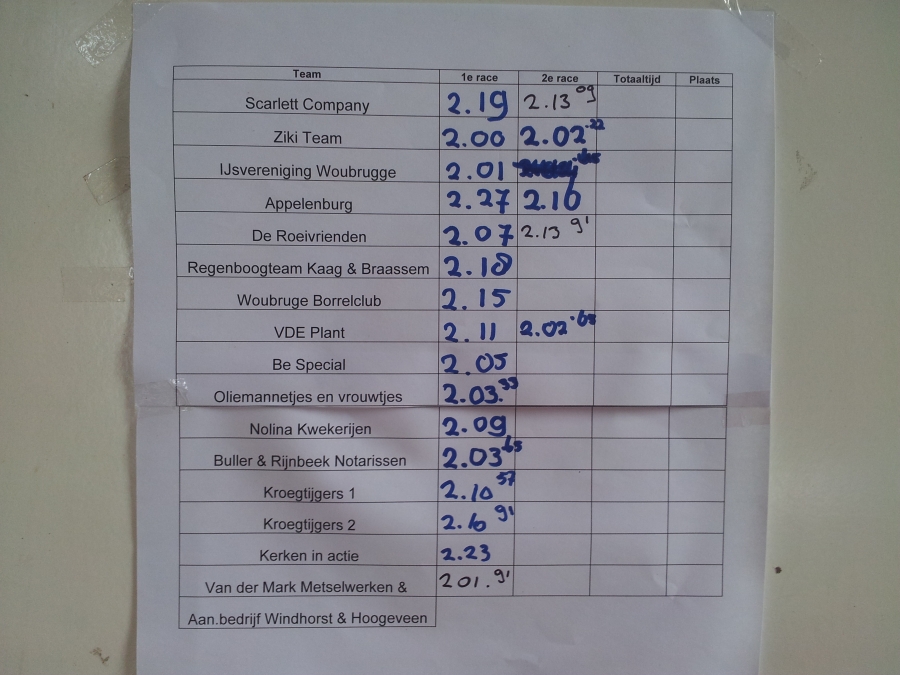 Team 1e race 2e race Totaaltijd Plaats
Scarlett Company 2.19 2.13 09
Ziki Team 2.00 2.02 .22
IJsvereniging Woubrugge 2.01
Appelenburg 2.27 2.10
De Roeivrienden 2.07 2.13 91
Regenboogteam Kaag & Braassem 2.18
Woubruge Borrelclub 2.15
VDE Plant 2.11 2.02 .68
Be Special 2.05
Oliemannetjes en vrouwtjes 2.03.33
Nolina Kwekerijen 2.09
Buller & Rijnbeek Notarissen 2.03 .63
Kroegtijgers 1 2.10 57
Kroegtijgers 2 2.10 91
Kerken in actie 2.23
Van der Mark Metselwerken & 201.91
Aan.bedrijf Windhorst & Hoogeveen